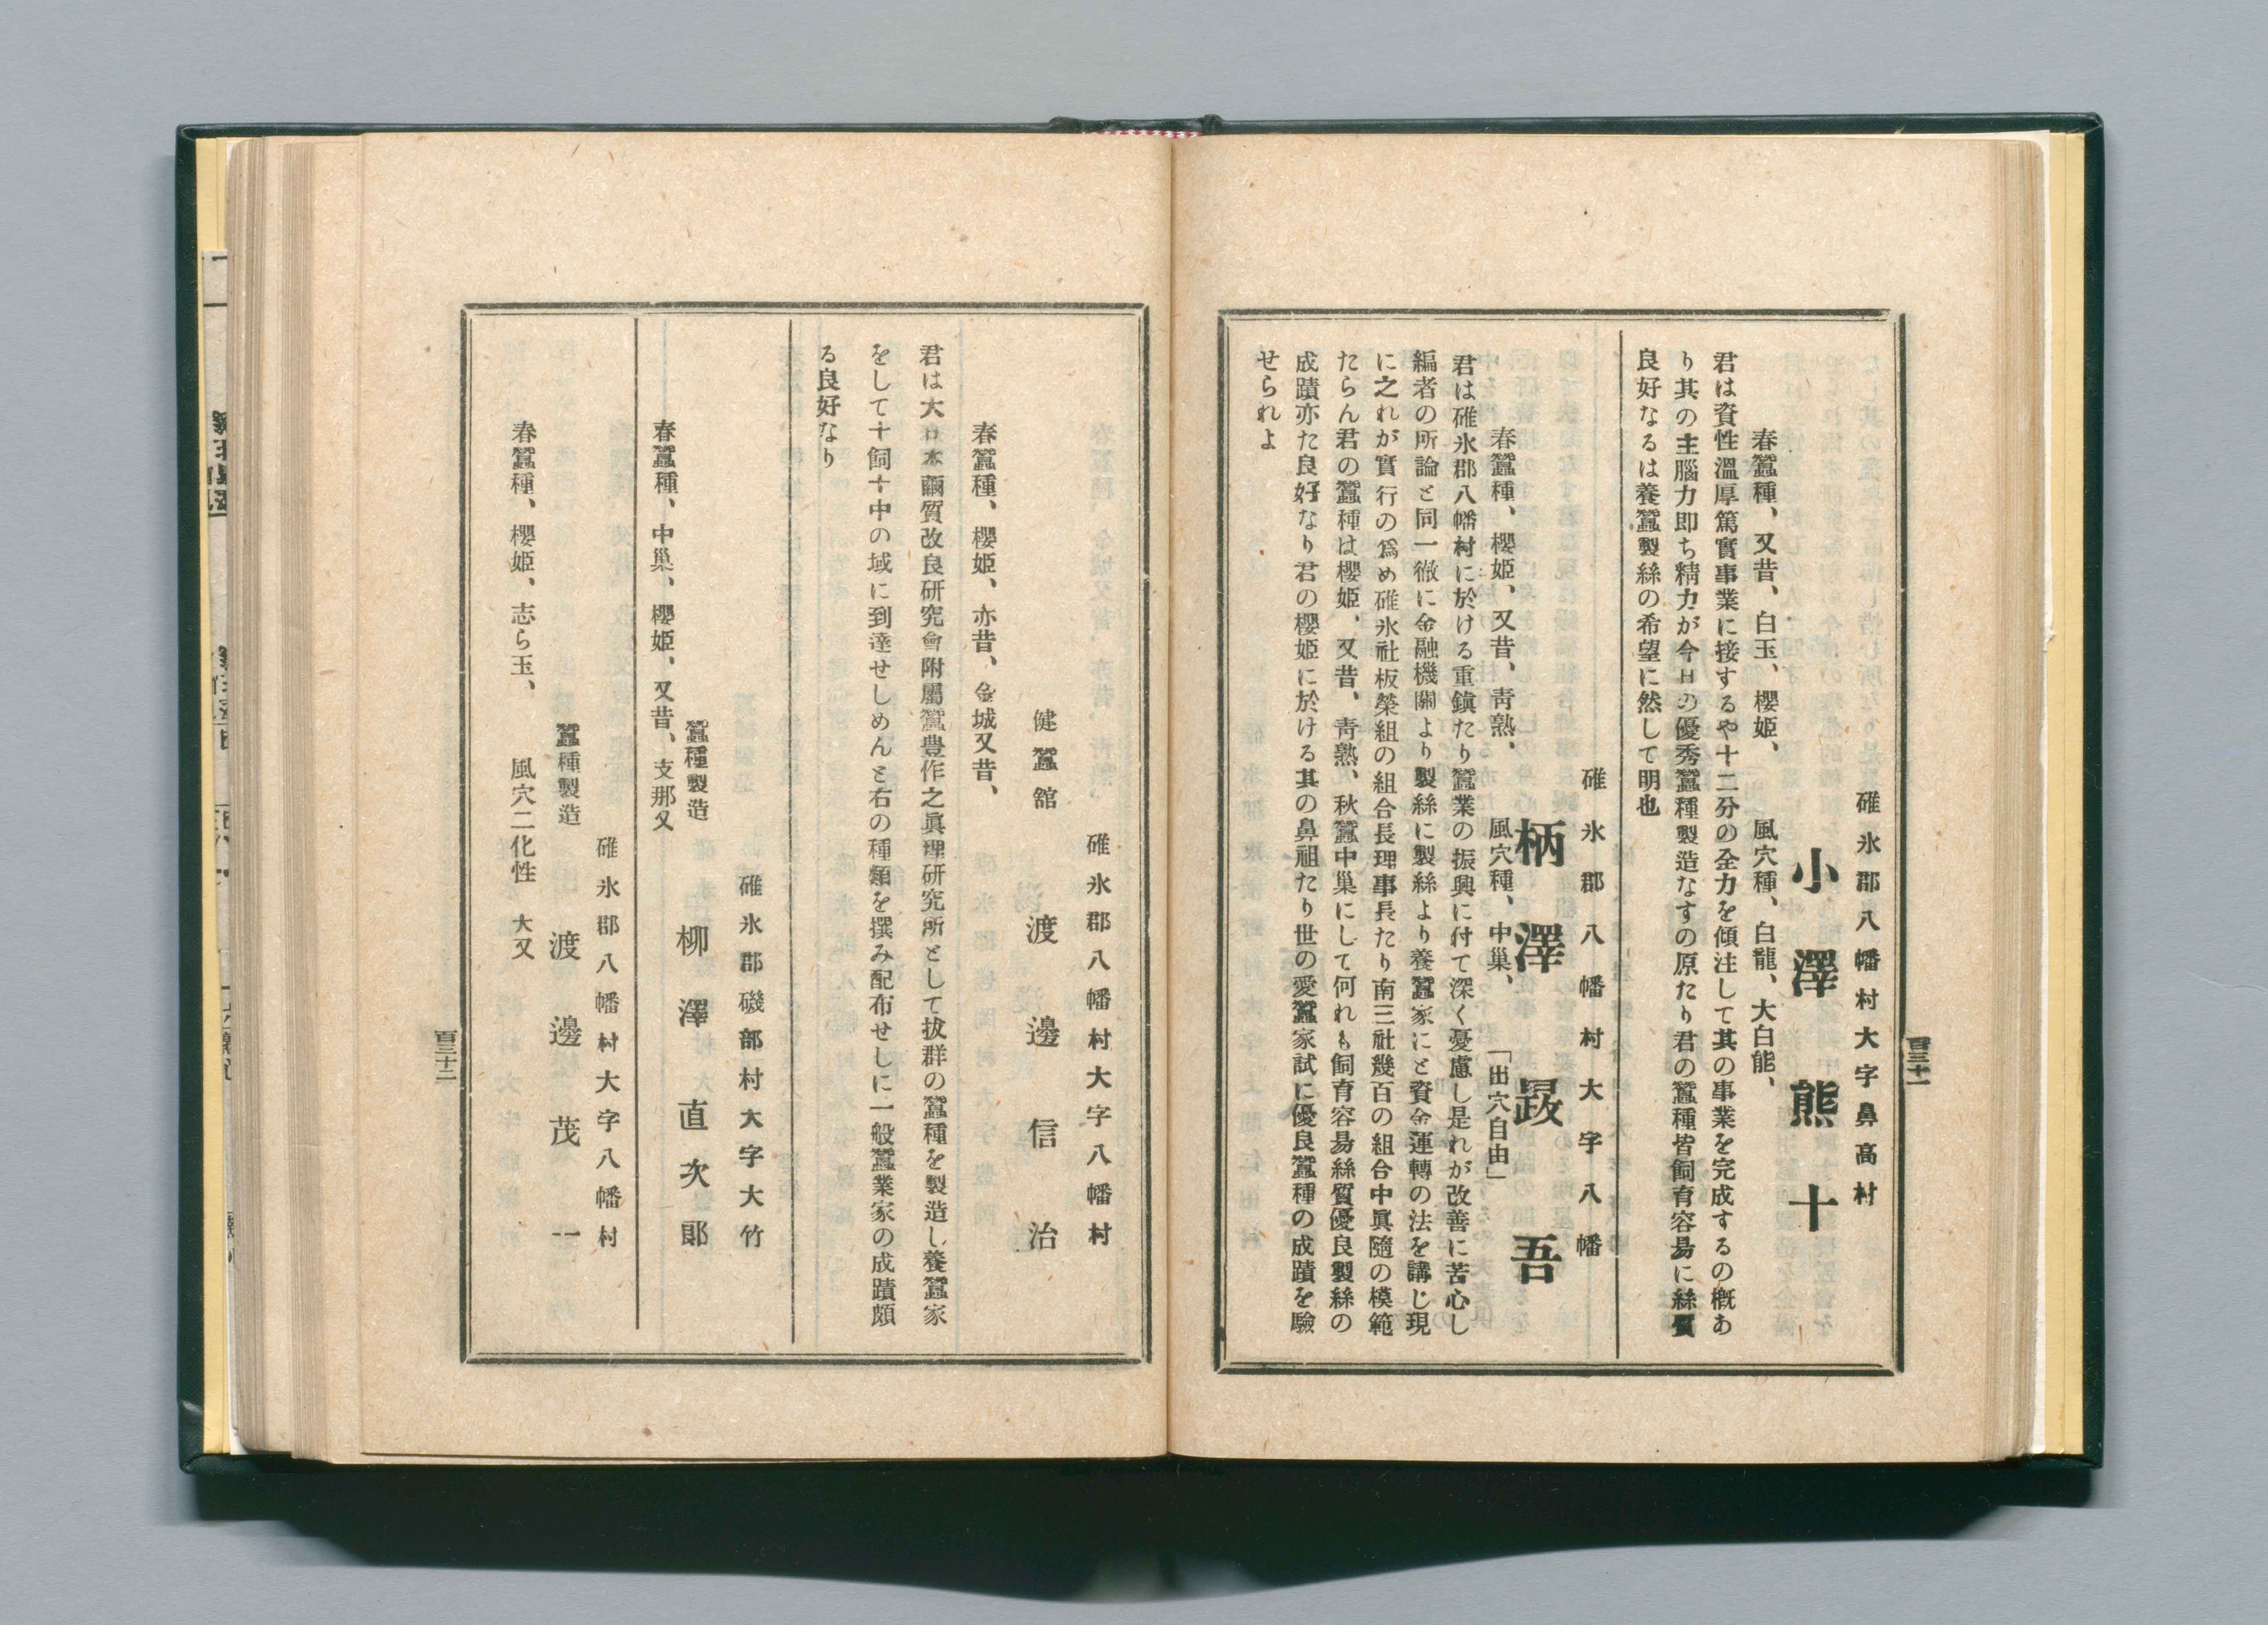 碓氷郡八幡村大字鼻高村
小澤熊十
春蠶種、又昔、白玉、櫻姫、　風穴種、白龍、大白熊、
君は資性溫厚篤實事業に接するや十二分の全力を傾注して其の事業を完成するの槪あ
り其の主腦力即ち精力が今日の優秀蠶種製造なすの原たり君の蠶種皆飼育容易に絲質
良好なるは養蠶製絲の希望に然して明也
碓氷郡八幡村大字八幡
柄澤吾
春蠶種、櫻姫、又昔、靑熟、　風穴種、中巢、　「出穴自由」
君は碓氷郡八幡村に於ける重鎭たり蠶業の振興に付て深く憂慮し是れが改善に苦心し
編者の所論と同一徹に金融機關より製絲に製絲より養蠶家にと資金運轉の法を講じ現
に之れが實行の爲め碓氷社板榮組の組合長理事長たり南三社幾百の組合中眞隨の模範
たらん君の蠶種は櫻姫、又昔、靑熟、秋蠶中巢にして何れも飼育容易絲質優良製絲の
成蹟亦た良好なり君の櫻姫に於ける其の鼻祖たり世の愛蠶家試に優良蠶種の成蹟を驗
せられよ
百三十一
碓氷郡八幡村大字八幡村
健蠶舘　渡邊信治
春蠶種、櫻姫、亦昔、金城又昔、
君は大日本繭質改良研究會附屬蠶豊作之眞理研究所として拔群の蠶種を製造し養蠶家
をして十飼十中の域に到達せしめんと右の種類を撰み配布せしに一般蠶業家の成蹟頗
る良好なり
碓氷郡磯部村大字大竹
蠶種製造　柳澤直次郞
春蠶種、中巢、櫻姫、又昔、支那又
碓氷郡八幡村大字八幡村
蠶種製造　渡邊茂一
春蠶種、櫻姫、志ら玉、　風穴二化性　大又
百三十二